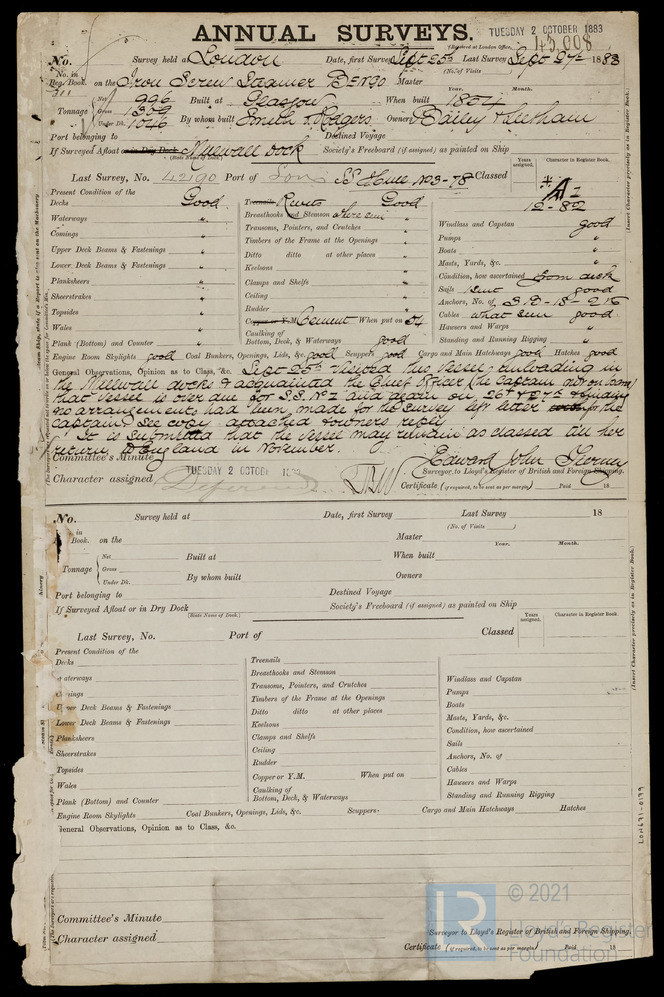 ANNUAL SURVEYS.
TUESDAY 2 OCTOBER 1883
(Received at London Office,
45,008
No. Survey held at London Date, first Survey Sept 25th Last Survey Sept 27th 1883
(No. of Visits )
No. in Reg. Book. 311 on the Iron Screw Steamer Bengo Master
Year. Month.
Tonnage Net 996 Built at Glasgow When built 1854
Gross 1339
Under Dk. 1046 By whom built Smith & Rogers Owners Bailey & Leetham
Port belonging to Destined Voyage
If Surveyed Afloat or in Dry Dock Millwall dock Society's Freeboard (if assigned) as painted on Ship
(State Name of Dock.)
Years assigned. Character in Register Book.
Last Survey, No. 42190 Port of Lon SS Hull No3-78 Classed
A1
12-82
Present Condition of the
Decks Good
Waterways "
Comings "
Upper Deck Beams & Fastenings "
Lower Deck Beams & Fastenings "
Planksheers "
Sheerstrakes "
Topsides "
Wales "
Plank (Bottom) and Counter "
Treenails Rivets Good
Breasthooks and Stemson "
Transoms, Pointers, and Crutches "
Timbers of the Frame at the Openings "
Ditto ditto at other places "
Keelsons "
Clamps and Shelfs "
Ceiling "
Rudder "
Copper or Y.M. Cement When put on 54
Caulking of Bottom, Deck, & Waterways good
Windlass and Capstan good
Pumps "
Boats "
Masts, Yards, &c. "
Condition, how ascertained from deck
Sails good
Anchors, No. of 3 B-1S-2K
Cables what seen good
Hawsers and Warps "
Standing and Running Rigging "
Engine Room Skylights good Coal Bunkers, Openings, Lids, &c. good Scuppers good Cargo and Main Hatchways good Hatches good
General Observations, Opinion as to Class, &c. Sept 25th Visited this vessel unloading in
the Millwall docks & acquainted the Chief Officer (the Captain not on board)
that vessel is over due for S.S. No 1 and again on 26th & 27th & finding
no arrangements had been made for the survey left letter for the
Captain see copy attached & owners reply
It is submitted that the vessel may remain as classed till her
return to England in November.
Committee's Minute TUESDAY 2 OCTOBER 1883
Edward John
Surveyor to Lloyd's Register of British and Foreign Shipping.
Character assigned
Certificate (if required, to be sent as per margin) Paid 18
No. Survey held at Date, first Survey Last Survey 18
(No. of Visits )
in Book. on the Master
Year. Month.
Tonnage Net Built at When built
Gross
Under Dk. By whom built Owners
Port belonging to Destined Voyage
If Surveyed Afloat or in Dry Dock Society's Freeboard (if assigned) as painted on Ship
(State Name of Dock.)
Years assigned. Character in Register Book.
Last Survey, No. Port of Classed
Present Condition of the
Decks
aterways
Comings
Upper Deck Beams & Fastenings
Lower Deck Beams & Fastenings
Planksheers
Sheerstrakes
Topsides
Wales
Plank (Bottom) and Counter
Treenails
Breasthooks and Stemson
Transoms, Pointers, and Crutches
Timbers of the Frame at the Openings
Ditto ditto at other places
Keelsons
Clamps and Shelfs
Ceiling
Rudder
Copper or Y.M. When put on
Caulking of
Bottom, Deck, & Waterways
Windlass and Capstan
Pumps
Boats
Masts, Yards, &c.
Condition, how ascertained
Sails
Anchors, No. of
Cables
Hawsers and Warps
Standing and Running Rigging
Engine Room Skylights Coal Bunkers, Openings, Lids, &c. Scuppers Cargo and Main Hatchways Hatches
General Observations, Opinion as to Class, &c.
Committee's Minute
Character assigned
Surveyor to Lloyd's Register of British and Foreign Shipping.
Certificate (if required, to be sent as per margin) Paid 18
(Insert Character precisely as in Register Book.)
(Insert Character precisely as in Register Book.)
LON671-0179
LR
© 2021
Lloyd's Register
Foundation